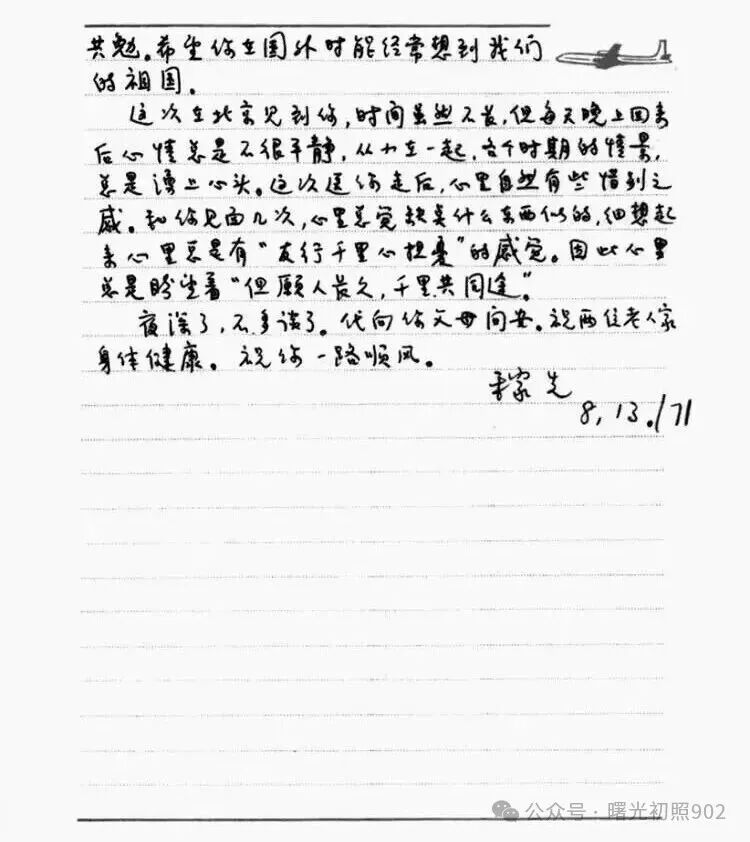 共勉。希望你在国外时能经常想到我们
的祖国。
这次在北京见到你，时间虽然不长，但每天晚上回来
后心情总是不很平静，从小在一起，各个时期的情景，
总是涌上心头。这次送你走后，心里自然有些惜别之
感。和你见面几次，心里总觉缺点什么东西似的，细想起
来心里总是有“友行千里心担忧”的感觉。因此心里
总是盼望着“但愿人长久，千里共同途”。
夜深了，不多谈了。代向你父母问安。祝两位老人家
身体健康。祝你一路顺风。
稼先
8.13./71
公众号·曙光初照902